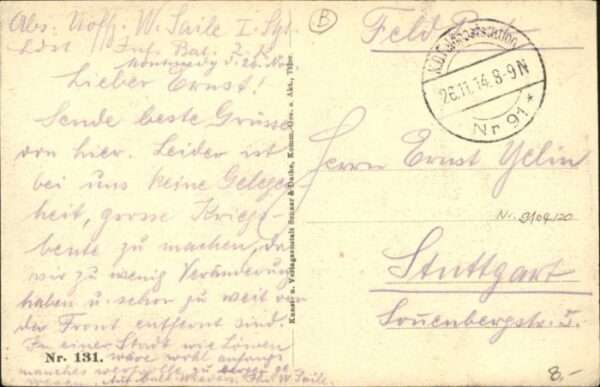 Abs. Uoff. W. Saile I. Sgl.
Ldst Inf. Bat. Z. K.
Montmedy d. 26. Nov.
Lieber Ernst!
Sende beste Grüsse
von hier. Leider ist
bei uns keine Gelegen-
heit, grosse Kriegs-
beute zu machen, da
wir zu wenig Veränderung
haben u. schon zu weit von
der Front entfernt sind.
In einer Stadt wie Löwen
wäre wohl anfangs
manches wertvolle zu
wesen. Auf bald. Wieder. W. Saile.
Nr. 131.
Kunst- u. Verlagsanstalt Schaar & Dathe, Komm.-Ges. a. Akt., Trier
B
Feld Post
K.D. Feldpoststation
26.11.14. 8-9 N
Nr 91 *
Herrn Ernst Yelin
Nr. 3104/20
Stuttgart
8.-